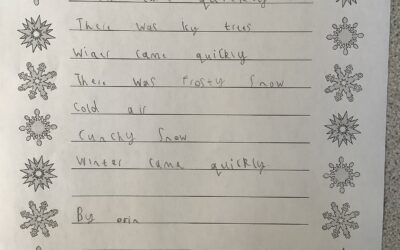 came quickly
There was Icy trees
Winer came quickly
There was frosty Snow
Cold air
Cunchy Snow
Winter came quickly
By orin